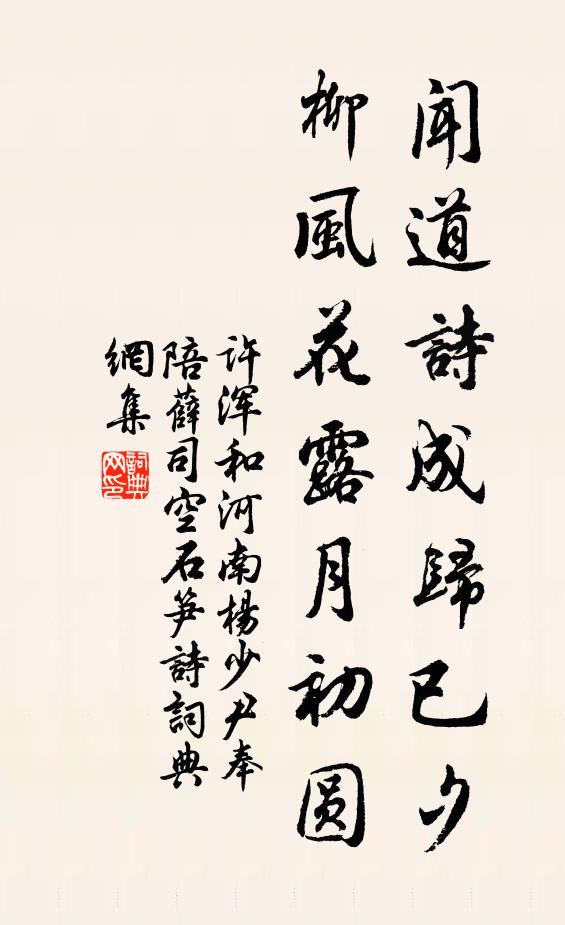 聞道詩成歸已夕
柳風花露月初圓
许渾和河南楊少尹奉
陪薛司空石笋詩詞典
網集
詞典網印